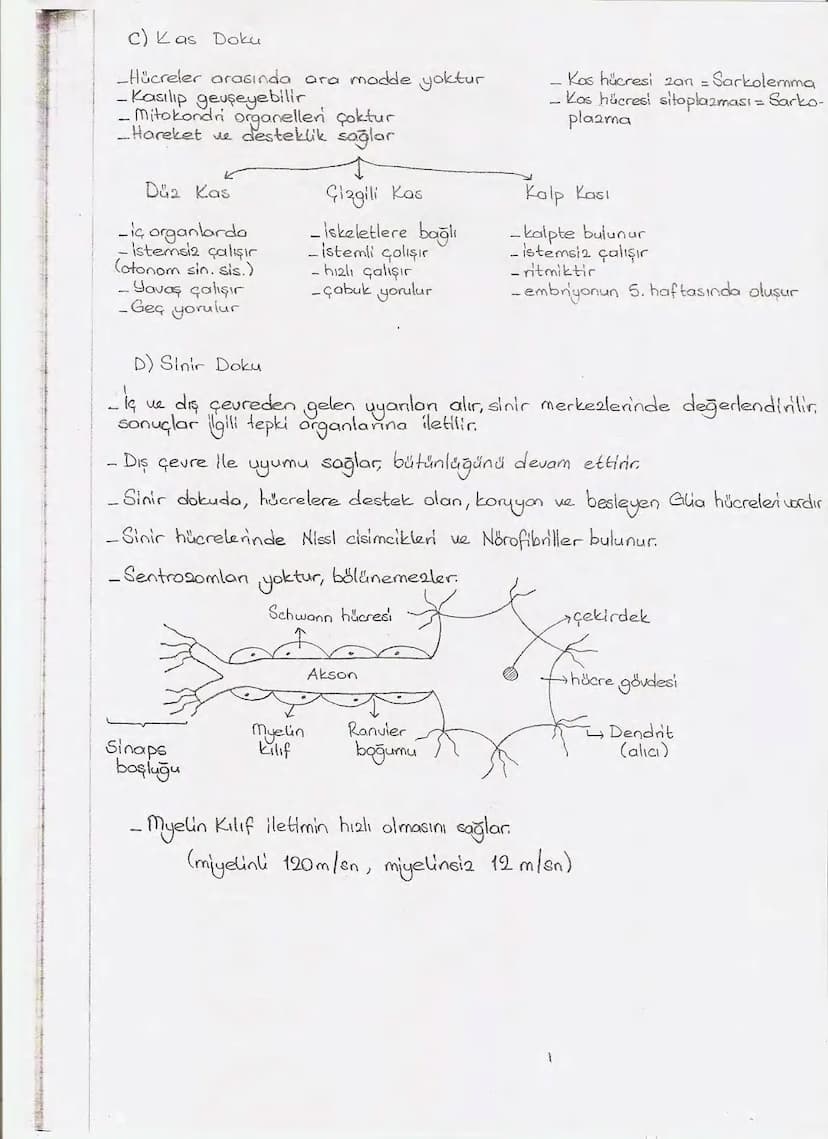 C) Kas Doku
-Hücreler arasında ara madde yoktur
-Kasılıp gevşeyebilir
-Mitokondri organelleri çoktur
-Hareket ve desteklik sağlar
- Kas hücresi zarı = Sarkolemma
- Kas hücresi sitoplazması = Sarko-
plazma
Düz Kas
-iç organlarda
-istemsiz çalışır
(otonom sin. sis.)
-Yavaş çalışır
-Geç yorulur
Çizgili Kas
-İskeletlere bağlı
-istemli çalışır
-hızlı çalışır
-çabuk yorulur
Kalp Kası
-kalpte bulunur
-istemsiz çalışır
-ritmiktir
-embriyonun 5. haftasında oluşur
D) Sinir Doku
-İç ve dış çevreden gelen uyarıları alır, sinir merkezlerinde değerlendirilir,
sonuçlar ilgili tepki organlarına iletilir.
- Dış çevre ile uyumu sağlar, bütünlüğünü devam ettirir.
-Sinir dokuda, hücrelere destek olan, koruyan ve besleyen Glia hücreleri vardır
-Sinir hücrelerinde Nissl cisimcikleri ve Nörofibriller bulunur.
-Sentrozomları yoktur, bölünemezler.
Schwann hücresi
çekirdek
Akson
hücre gövdesi
Myelin
kılıf
Ranvier
boğumu
Dendrit
(alıcı)
Sinaps
boşluğu
- Myelin Kılıf iletimin hızlı olmasını sağlar.
(miyelinli 120m/sn, miyelinsiz 12 m/sn)